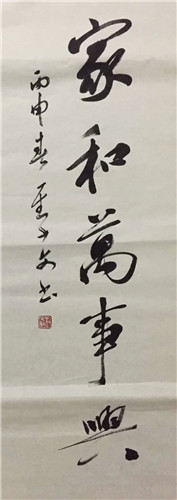 家和萬事興
丙申春
书